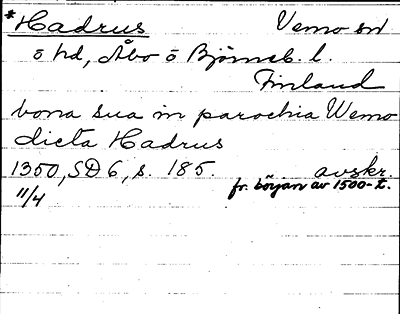 *Hadrus Vemo sn
ö hd, Åbo ö Björneb. l.
Finland
bona sua in parochia Wemo
dicta Hadrus
1350, SD 6, s. 185. avskr.
fr. början av 1500-t.
11/4